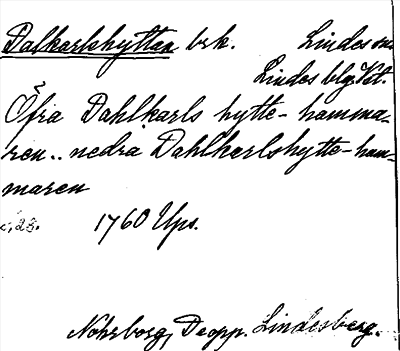 Dalkarlshyttan brk. Lindes sn.
Lindes blg. Vstm.
Öfra Dahlkarls hytte-hamma-
ren.. nedra Dahlkarlshytte-ham-
maren
1760 Ups.
Nohrborg, Deopp. Lindesberg.